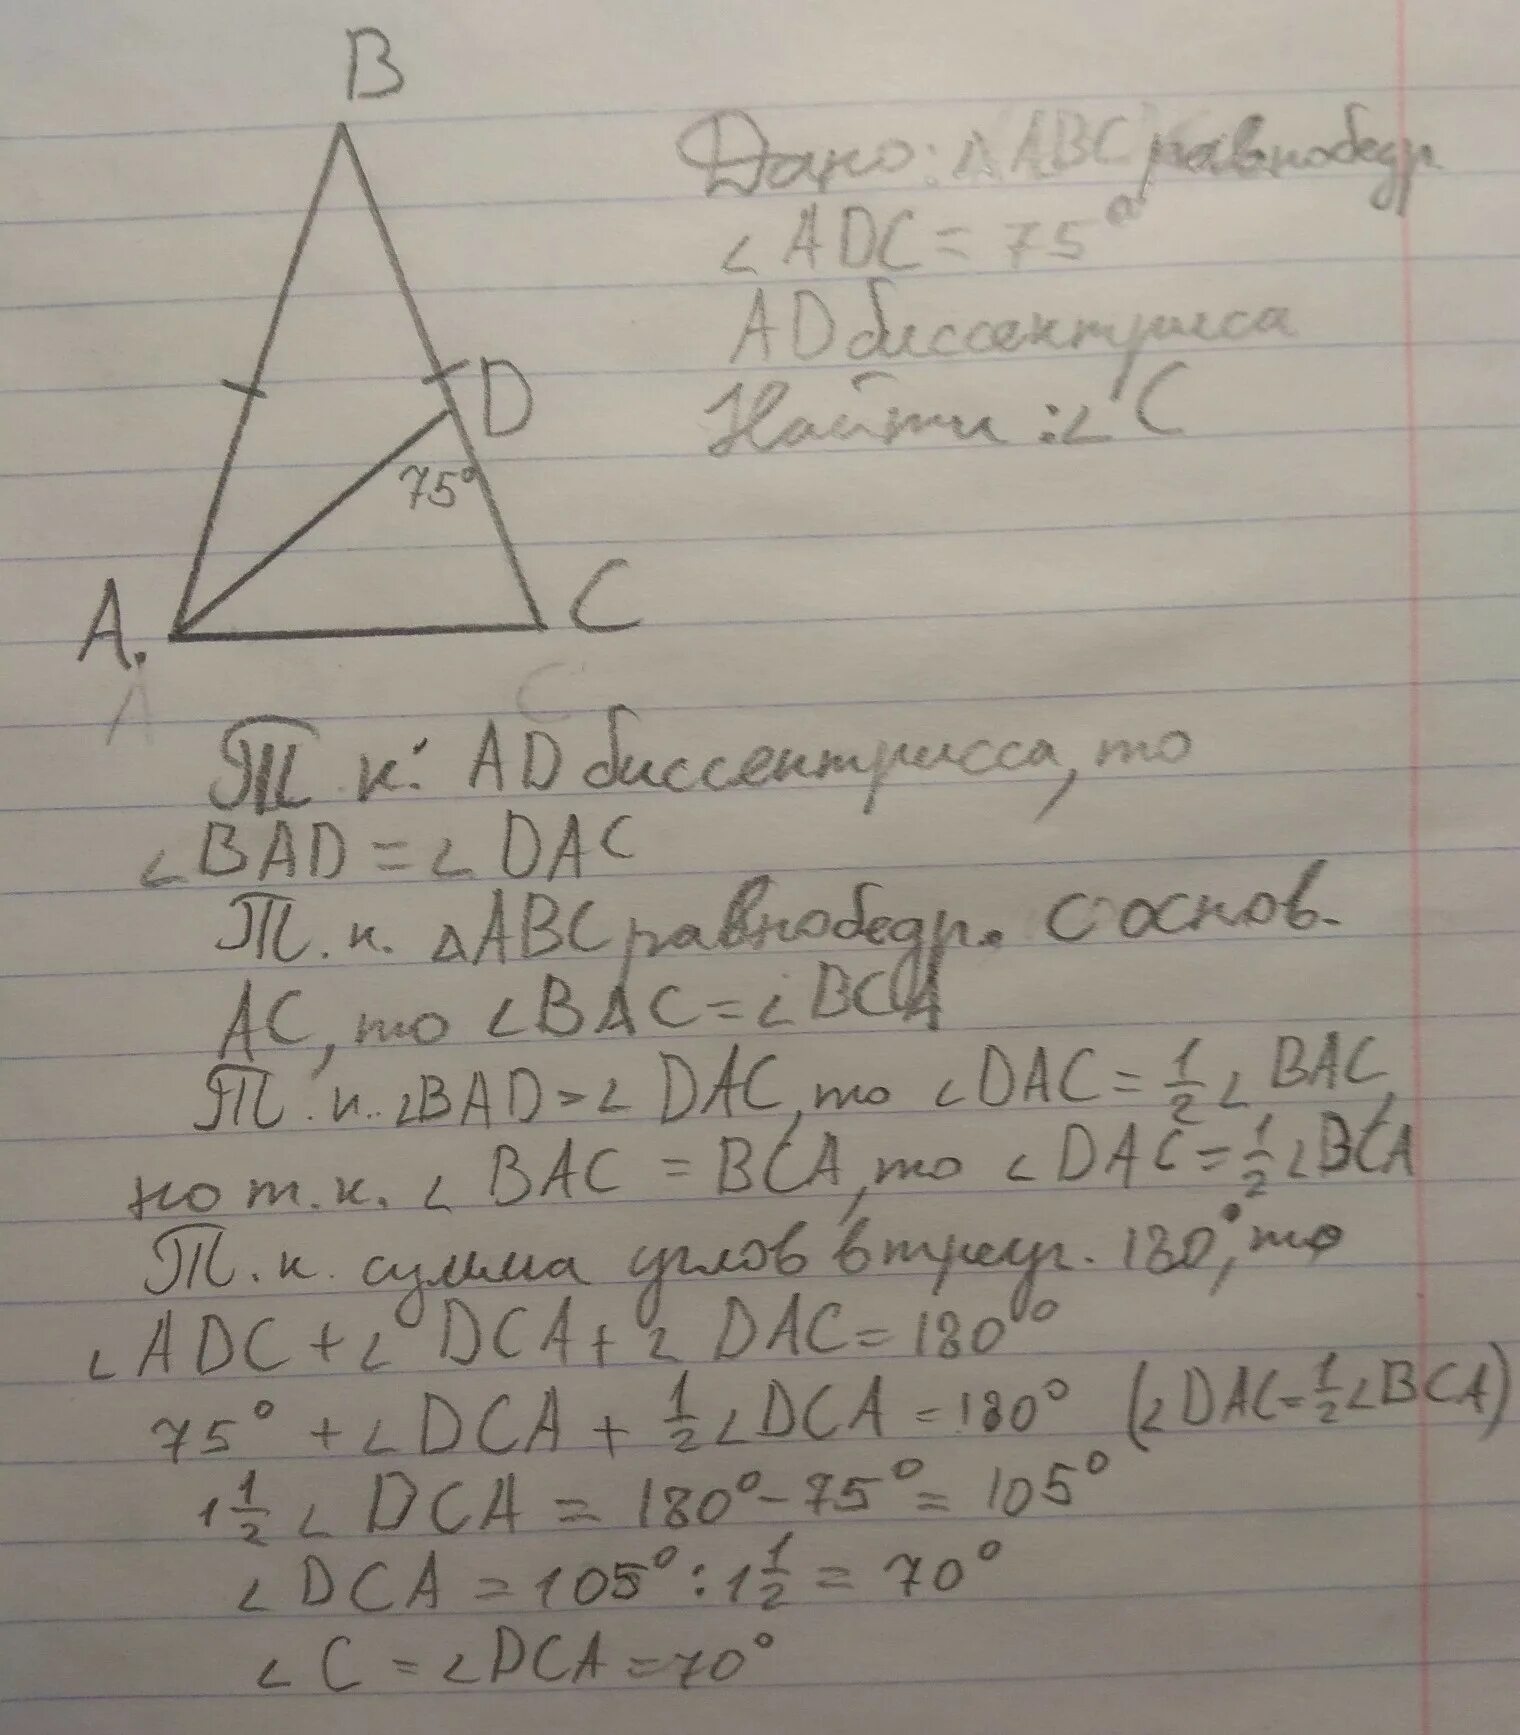 B
Дано: △ABC равнобедр.
∠ADC = 75°
AD биссектриса
Найти: ∠C
D
75°
A.
C
A
C
Т.к. AD биссектрисса, то
∠BAD = ∠DAC
Т.к. △ABC равнобедр. с основ.
AC, то ∠BAC = ∠BCA
Т.к. ∠BAD = ∠DAC, то ∠DAC = 1/2 ∠BAC,
но т.к. ∠BAC = BCA, то ∠DAC = 1/2 ∠BCA
Т.к. сумма углов в треуг. 180°, то
∠ADC + ∠DCA + ∠DAC = 180°
75° + ∠DCA + 1/2 ∠DCA = 180° (∠DAC = 1/2 ∠BCA)
1 1/2 ∠DCA = 180° - 75° = 105°
∠DCA = 105° : 1 1/2 = 70°
∠C = ∠DCA = 70°